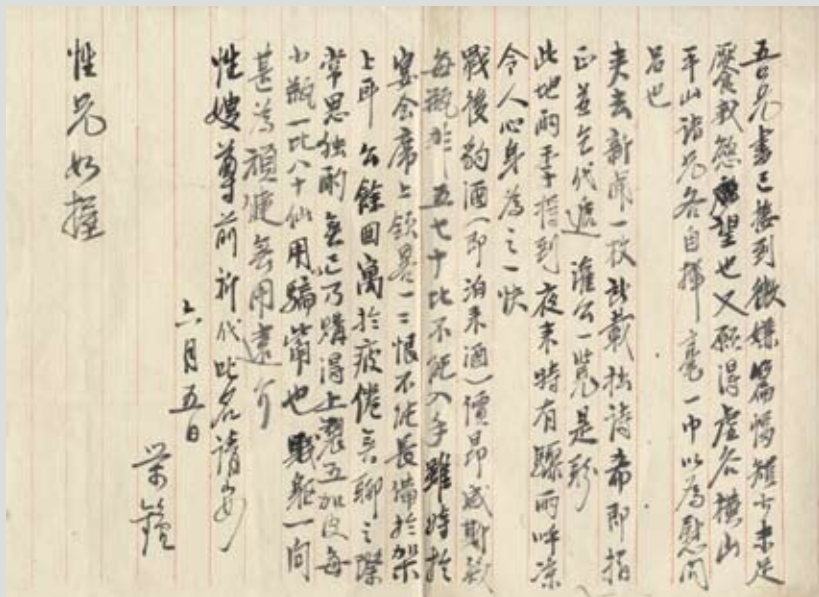 吾兄書已接到微嫌篇幅短少未足
饜我慾望也又願得虛谷横山
平山諸兄各自揮毫一巾以為慰問
品也
夾去新虎一枚載拙詩希即指
正並乞代遞蓮公一覽是盼
此地雨季撝到夜来時有驟雨呼凉
令人心身為之一快
戰後的酒(即泊来酒)價昂威斯
每瓶非五七十比不能入手雖時於
宴會席上領畧一二恨不能長備於架
上耳公餘回寓於疲倦無聊之際
常思独酌無已乃購得上選五加皮每
小瓶一比八十仙用騙胃也賤軀一向
甚為頑健無用遠介
性嫂尊前祈代叱名請安
性兄如握
六月五日
榮鐘